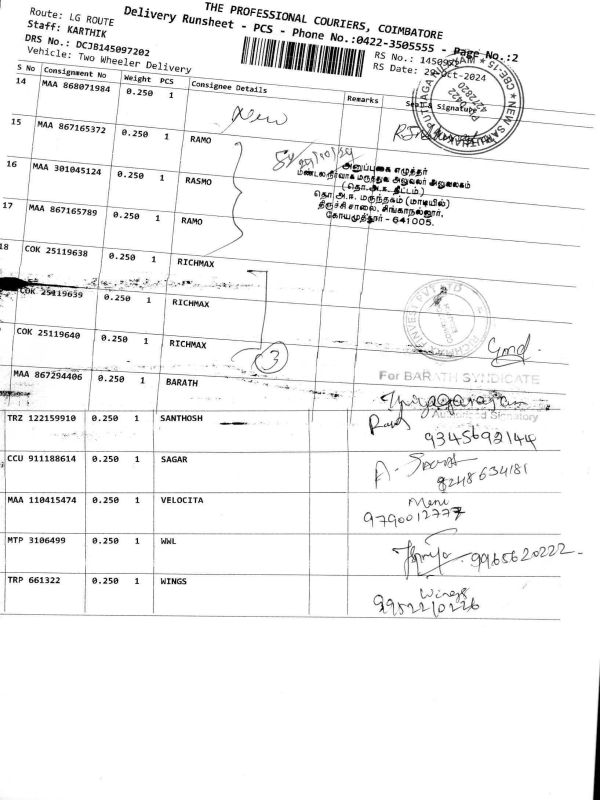 THE PROFESSIONAL COURIERS, COIMBATORE
Delivery Runsheet - PCS - Phone No.:0422-3505555 - Page No.:2
Route: LG ROUTE
Staff: KARTHIK
DRS No.: DCJB145097202
Vehicle: Two Wheeler Delivery
RS Date: 29-Oct-2024
S No Consignment No Weight PCS Consignee Details Remarks Seal & Signature
14 MAA 868071984 0.250 1
New
15 MAA 867165372 0.250 1 RAMO
16 MAA 301045124 0.250 1 RASMO
17 MAA 867165789 0.250 1 RAMO
29/10/24
அனுப்புகை எழுத்தர்
மண்டல நிர்வாக மருத்துவ அலுவலர் அலுவலகம்
(தொ.அ.க.திட்டம்)
தொ.அ.ஈ. மருந்தகம் (மாடியில்)
திருச்சி சாலை, சிங்காநல்லூர்,
கோயமுத்தூர் - 641005.
18 COK 25119638 0.250 1 RICHMAX
COK 25119639 0.250 1 RICHMAX
COK 25119640 0.250 1 RICHMAX
3
MAA 867294406 0.250 1 BARATH
For BARATH SYNDICATE
Authorised Signatory
TRZ 122159910 0.250 1 SANTHOSH
9345692144
CCU 911188614 0.250 1 SAGAR
8248634181
MAA 110415474 0.250 1 VELOCITA
Meni
9790012777
MTP 3106499 0.250 1 WWL
9965620222
TRP 661322 0.250 1 WINGS
Wings
9952210226